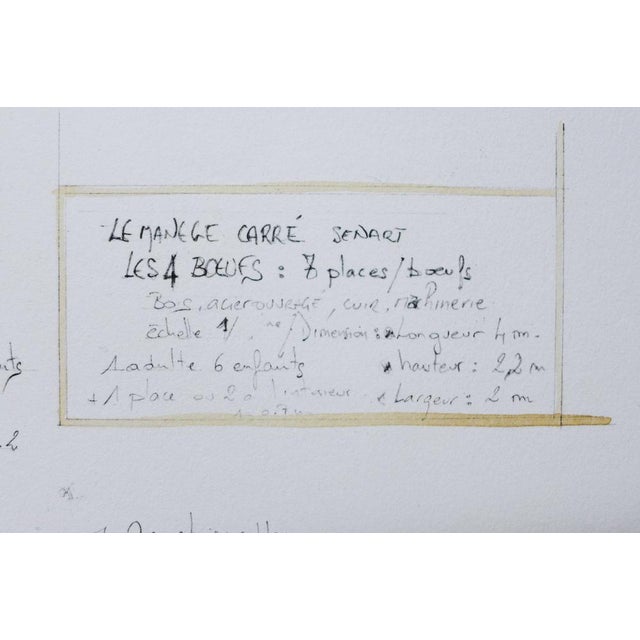 LE MANEGE CARRÉ SENART
LES 4 BŒUFS : 7 places/bœufs
BOIS, acier ouvragé, cuir, machinerie
échelle 1/ Dimension : Longueur 4 m.
1 adulte 6 enfants * hauteur : 2,2 m
+ 1 place ou 2 à l'intérieur * Largeur : 2 m